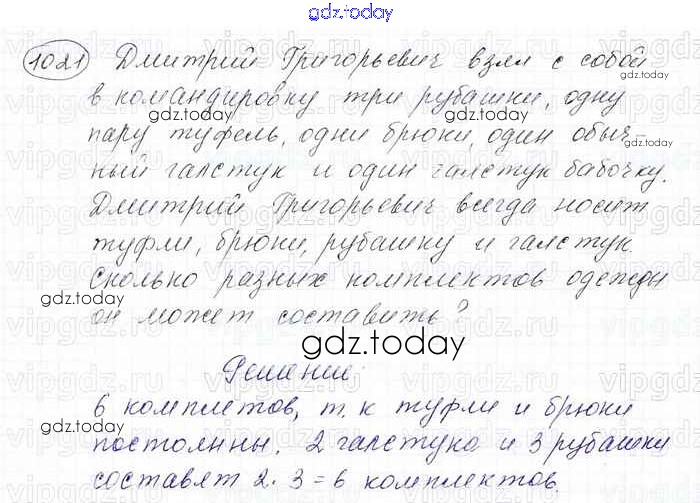 gdz.today
1021 Дмитрий Григорьевич взял с собой
gdz.today
в командировку три рубашки, одну
пару туфель, одни брюки, один обыч-
gdz.today
gdz.today
ный галстук и один галстук бабочку.
Дмитрий Григорьевич всегда носит
gdz.today
туфли, брюки, рубашку и галстук
Сколько разных комплектов одежды
gdz.today
gdz.today
он может составить?
gdz.today
Решение:
6 комплетов, т. к туфли и брюки
постоянны. 2 галстука и 3 рубашки
gdz.today
составят 2 · 3 = 6 комплектов.